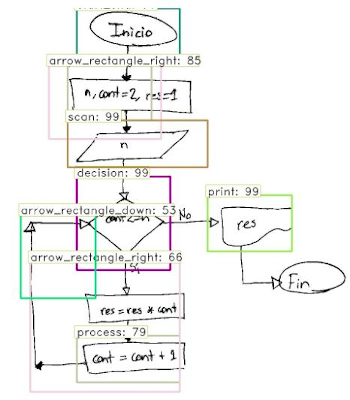 Inicio
arrow_rectangle_right: 85
n, cont=2, res=1
scan: 99
n
decision: 99
print: 99
arrow_rectangle_down: 53
cont<=n
No
res
arrow_rectangle_right: 66
Si
Fin
res=res * cont
process: 79
cont = cont + 1